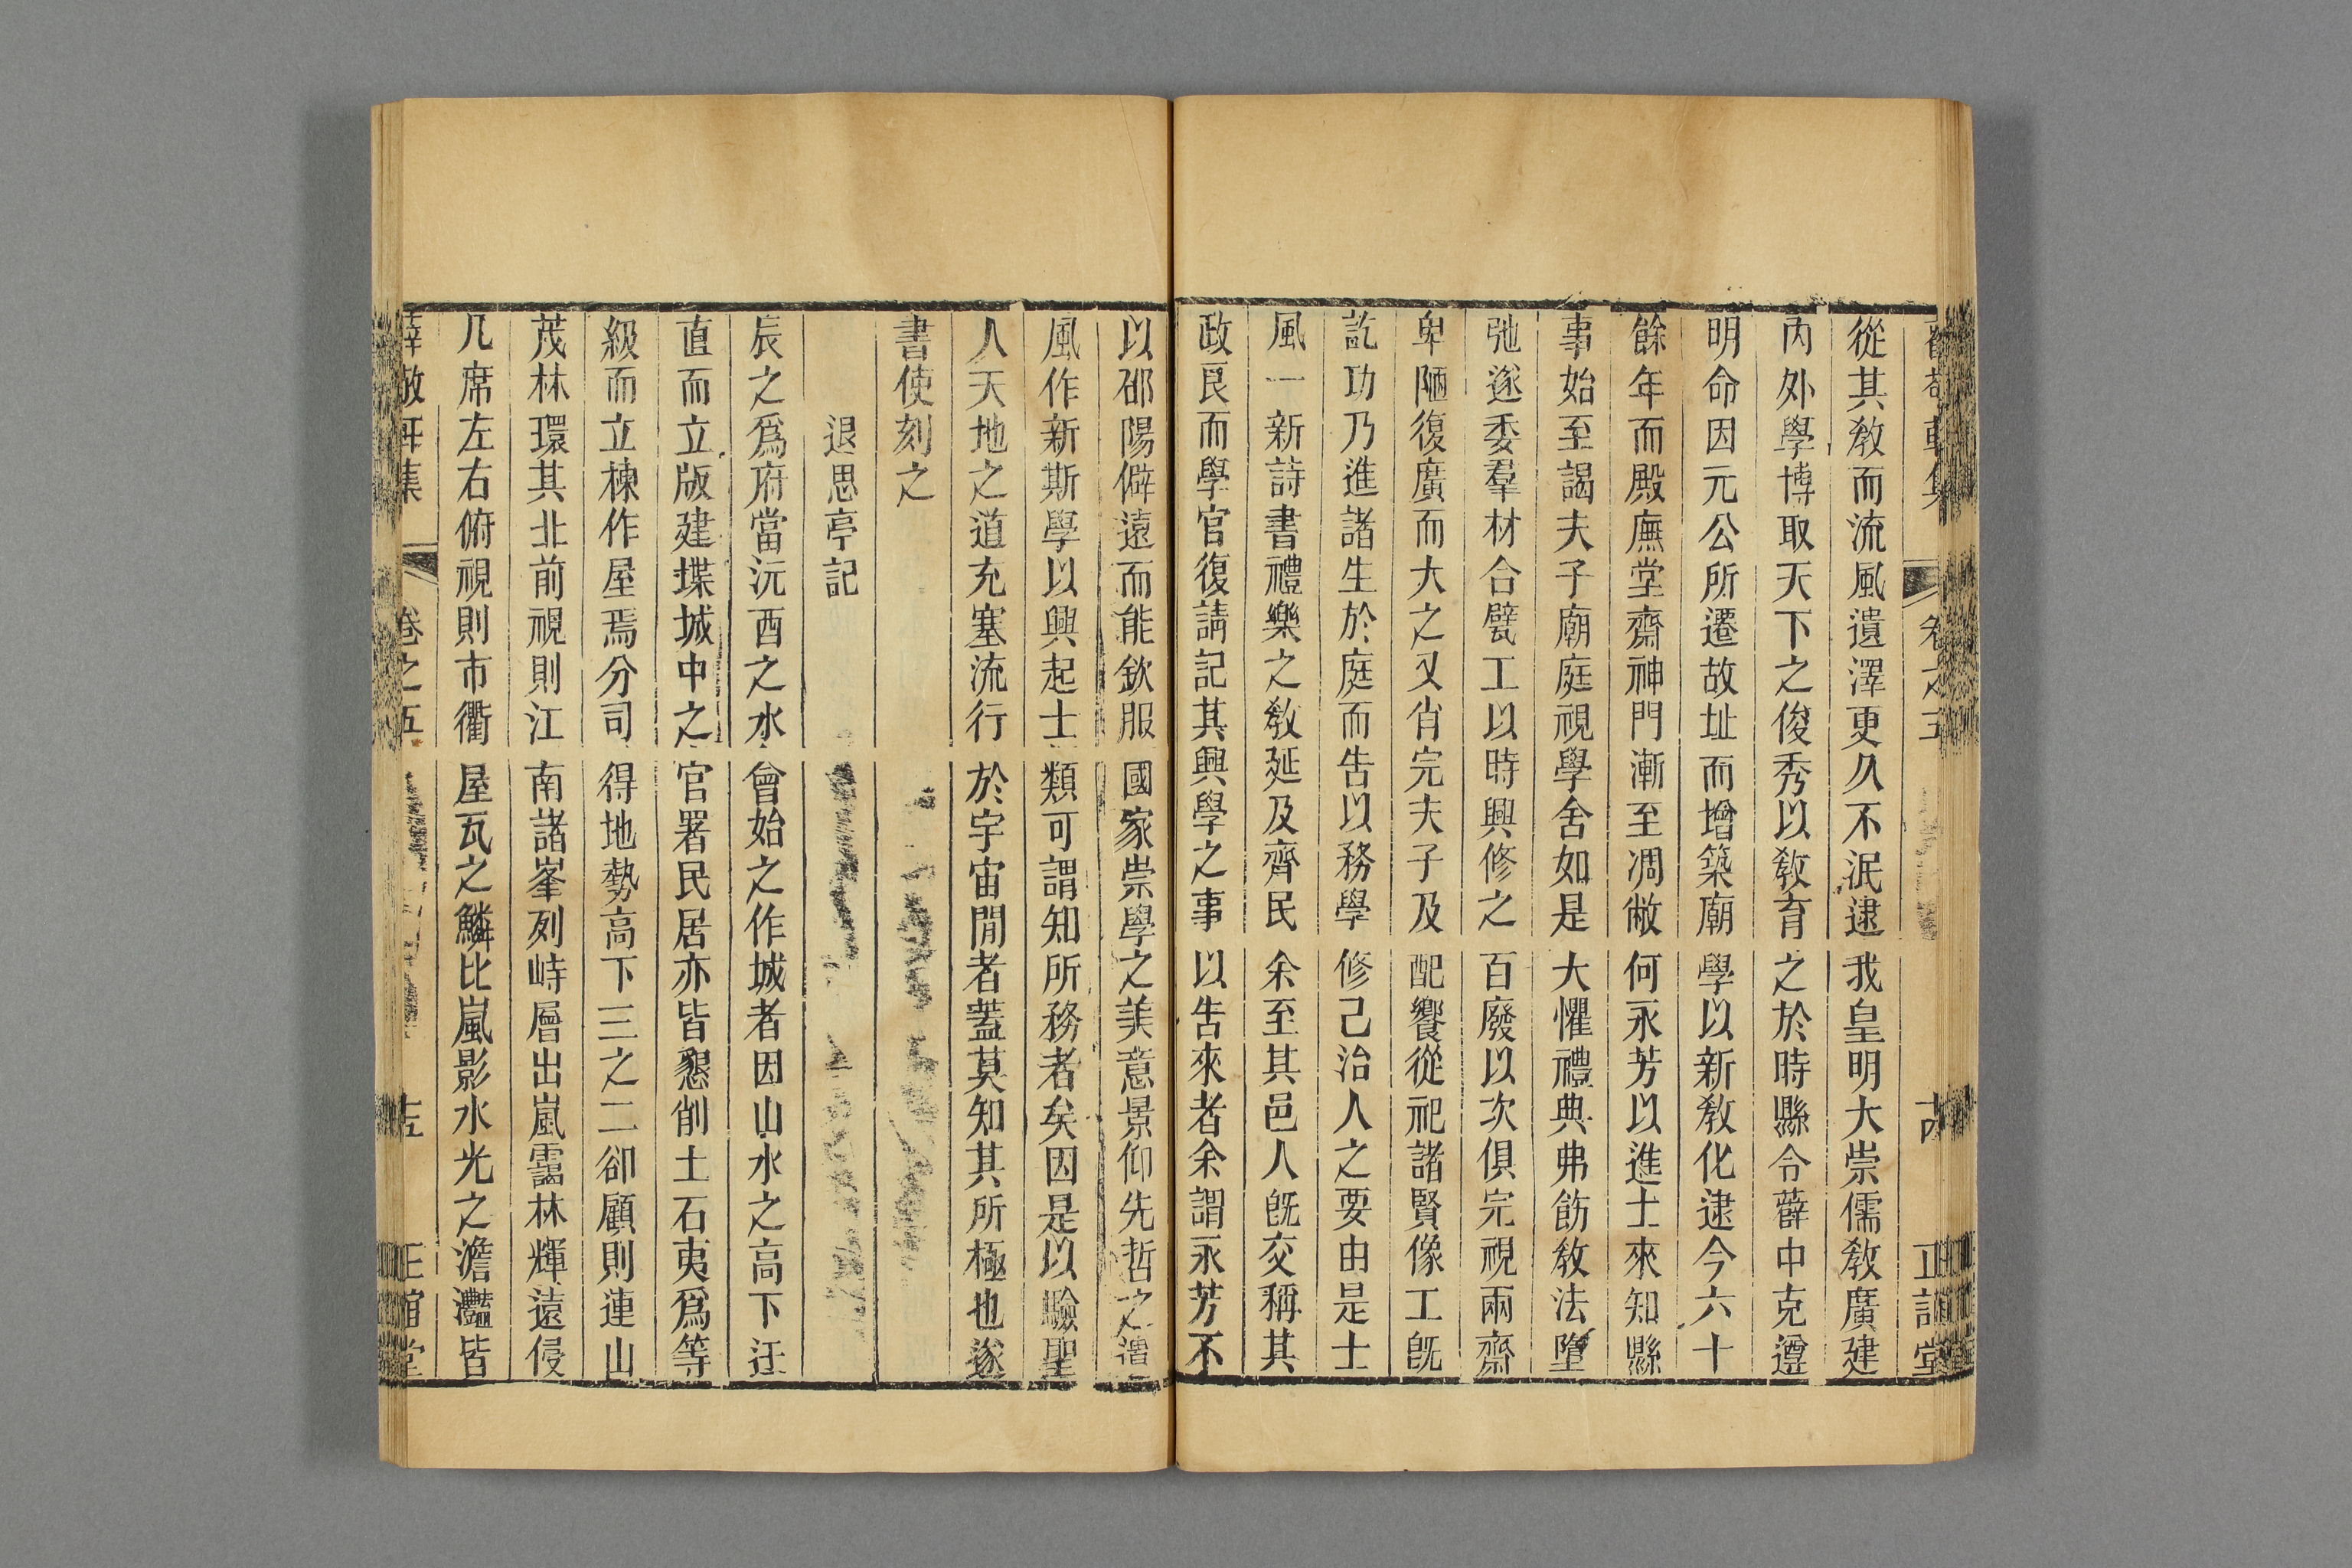 從其敎而流風遺澤更久不泯逮我皇明大崇儒敎廣建
內外學博取天下之俊秀以敎育之於時縣令薛中克遵
明命因元公所遷故址而增築廟學以新敎化逮今六十
餘年而殿廡堂齋神門漸至凋敝何永芳以進士來知縣
事始至謁夫子廟庭視學舍如是大懼禮典弗飭敎法墮
弛遂委羣材合甓工以時興修之百廢以次俱完視兩齋
卑陋復廣而大之又肖完夫子及配饗從祀諸賢像工旣
訖功乃進諸生於庭而告以務學修己治人之要由是士
風一新詩書禮樂之敎延及齊民余至其邑人旣交稱其
政良而學官復請記其興學之事以告來者余謂永芳不
以邵陽僻遠而能欽服國家崇學之美意景仰先哲之遺
風作新斯學以興起士類可謂知所務者矣因是以驗聖
人天地之道充塞流行於宇宙閒者蓋莫知其所極也遂
書使刻之
退思亭記
辰之爲府當沅酉之水會始之作城者因山水之高下迂
直而立版建堞城中之官署民居亦皆懇削土石夷爲等
級而立棟作屋焉分司得地勢高下三之二卻顧則連山
茂林環其北前視則江南諸峯列峙層出嵐靄林輝遠侵
几席左右俯視則市衢屋瓦之鱗比嵐影水光之澹灩皆
薛敬軒集 卷之五 正誼堂